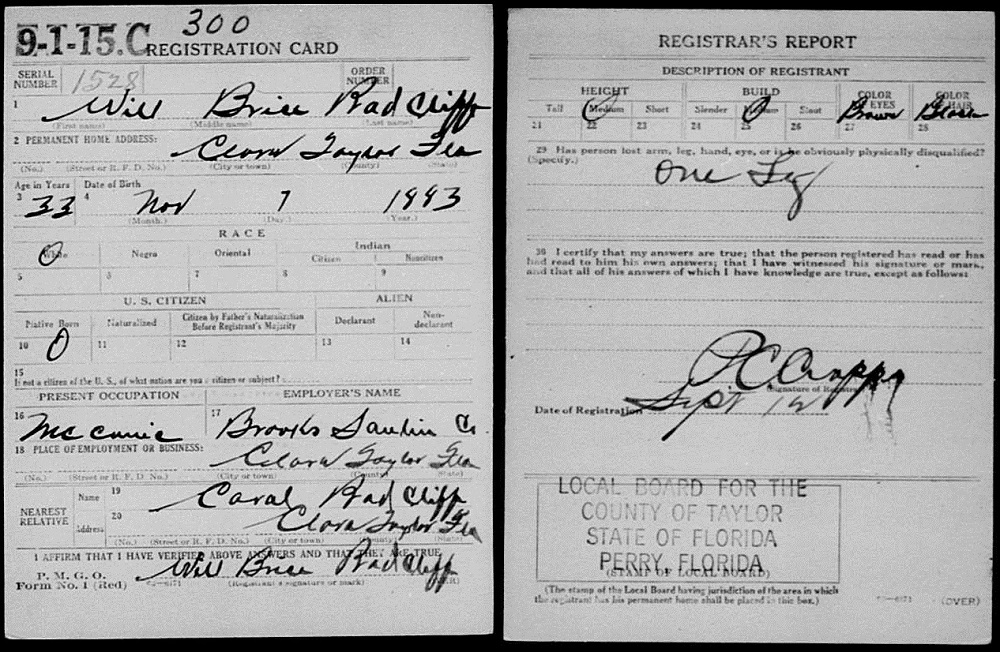 300
9-1-15.C REGISTRATION CARD
SERIAL NUMBER 1528 ORDER NUMBER
1 Will Brice Radcliff
(First name) (Middle name) (Last name)
2 PERMANENT HOME ADDRESS: Clara Taylor Fla
(No.) (Street or R. F. D. No.) (City or town) (County) (State)
Age in Years Date of Birth
3 33 4 Nov 7 1883
(Month.) (Day.) (Year.)
RACE
White Negro Oriental Indian
Citizen Noncitizen
5 6 7 8 9
U. S. CITIZEN ALIEN
Native Born Naturalized Citizen by Father's Naturalization Before Registrant's Majority Declarant Non-declarant
10 11 12 13 14
15
If not a citizen of the U. S., of what nation are you a citizen or subject?
PRESENT OCCUPATION EMPLOYER'S NAME
16 17
Mccanic Brooks Co
18 PLACE OF EMPLOYMENT OR BUSINESS:
Clara Taylor Fla
(No.) (Street or R. F. D. No.) (City or town) (County) (State)
NEAREST RELATIVE Name 19 Radcliff
Address 20 Clara Taylor Fla
(No.) (Street or R. F. D. No.) (City or town) (County) (State)
I AFFIRM THAT I HAVE VERIFIED ABOVE ANSWERS AND THAT THEY ARE TRUE
P. M. G. O.
Form No. 1 (Red) Will Brice Radcliff
(Registrant's signature or mark) (OVER)
REGISTRAR'S REPORT
DESCRIPTION OF REGISTRANT
HEIGHT BUILD COLOR OF EYES COLOR OF HAIR
Tall Medium Short Slender Medium Stout Brown Black
21 22 23 24 25 26 27 28
29 Has person lost arm, leg, hand, eye, or is he obviously physically disqualified?
(Specify.)
One Leg
30 I certify that my answers are true; that the person registered has read or has
had read to him his own answers; that I have witnessed his signature or mark,
and that all of his answers of which I have knowledge are true, except as follows:
(Signature of Registrar)
Date of Registration Sept 12
LOCAL BOARD FOR THE
COUNTY OF TAYLOR
STATE OF FLORIDA
PERRY, FLORIDA
(STAMP OF LOCAL BOARD)
(The stamp of the Local Board having jurisdiction of the area in which
the registrant has his permanent home shall be placed in this box.)
(OVER)